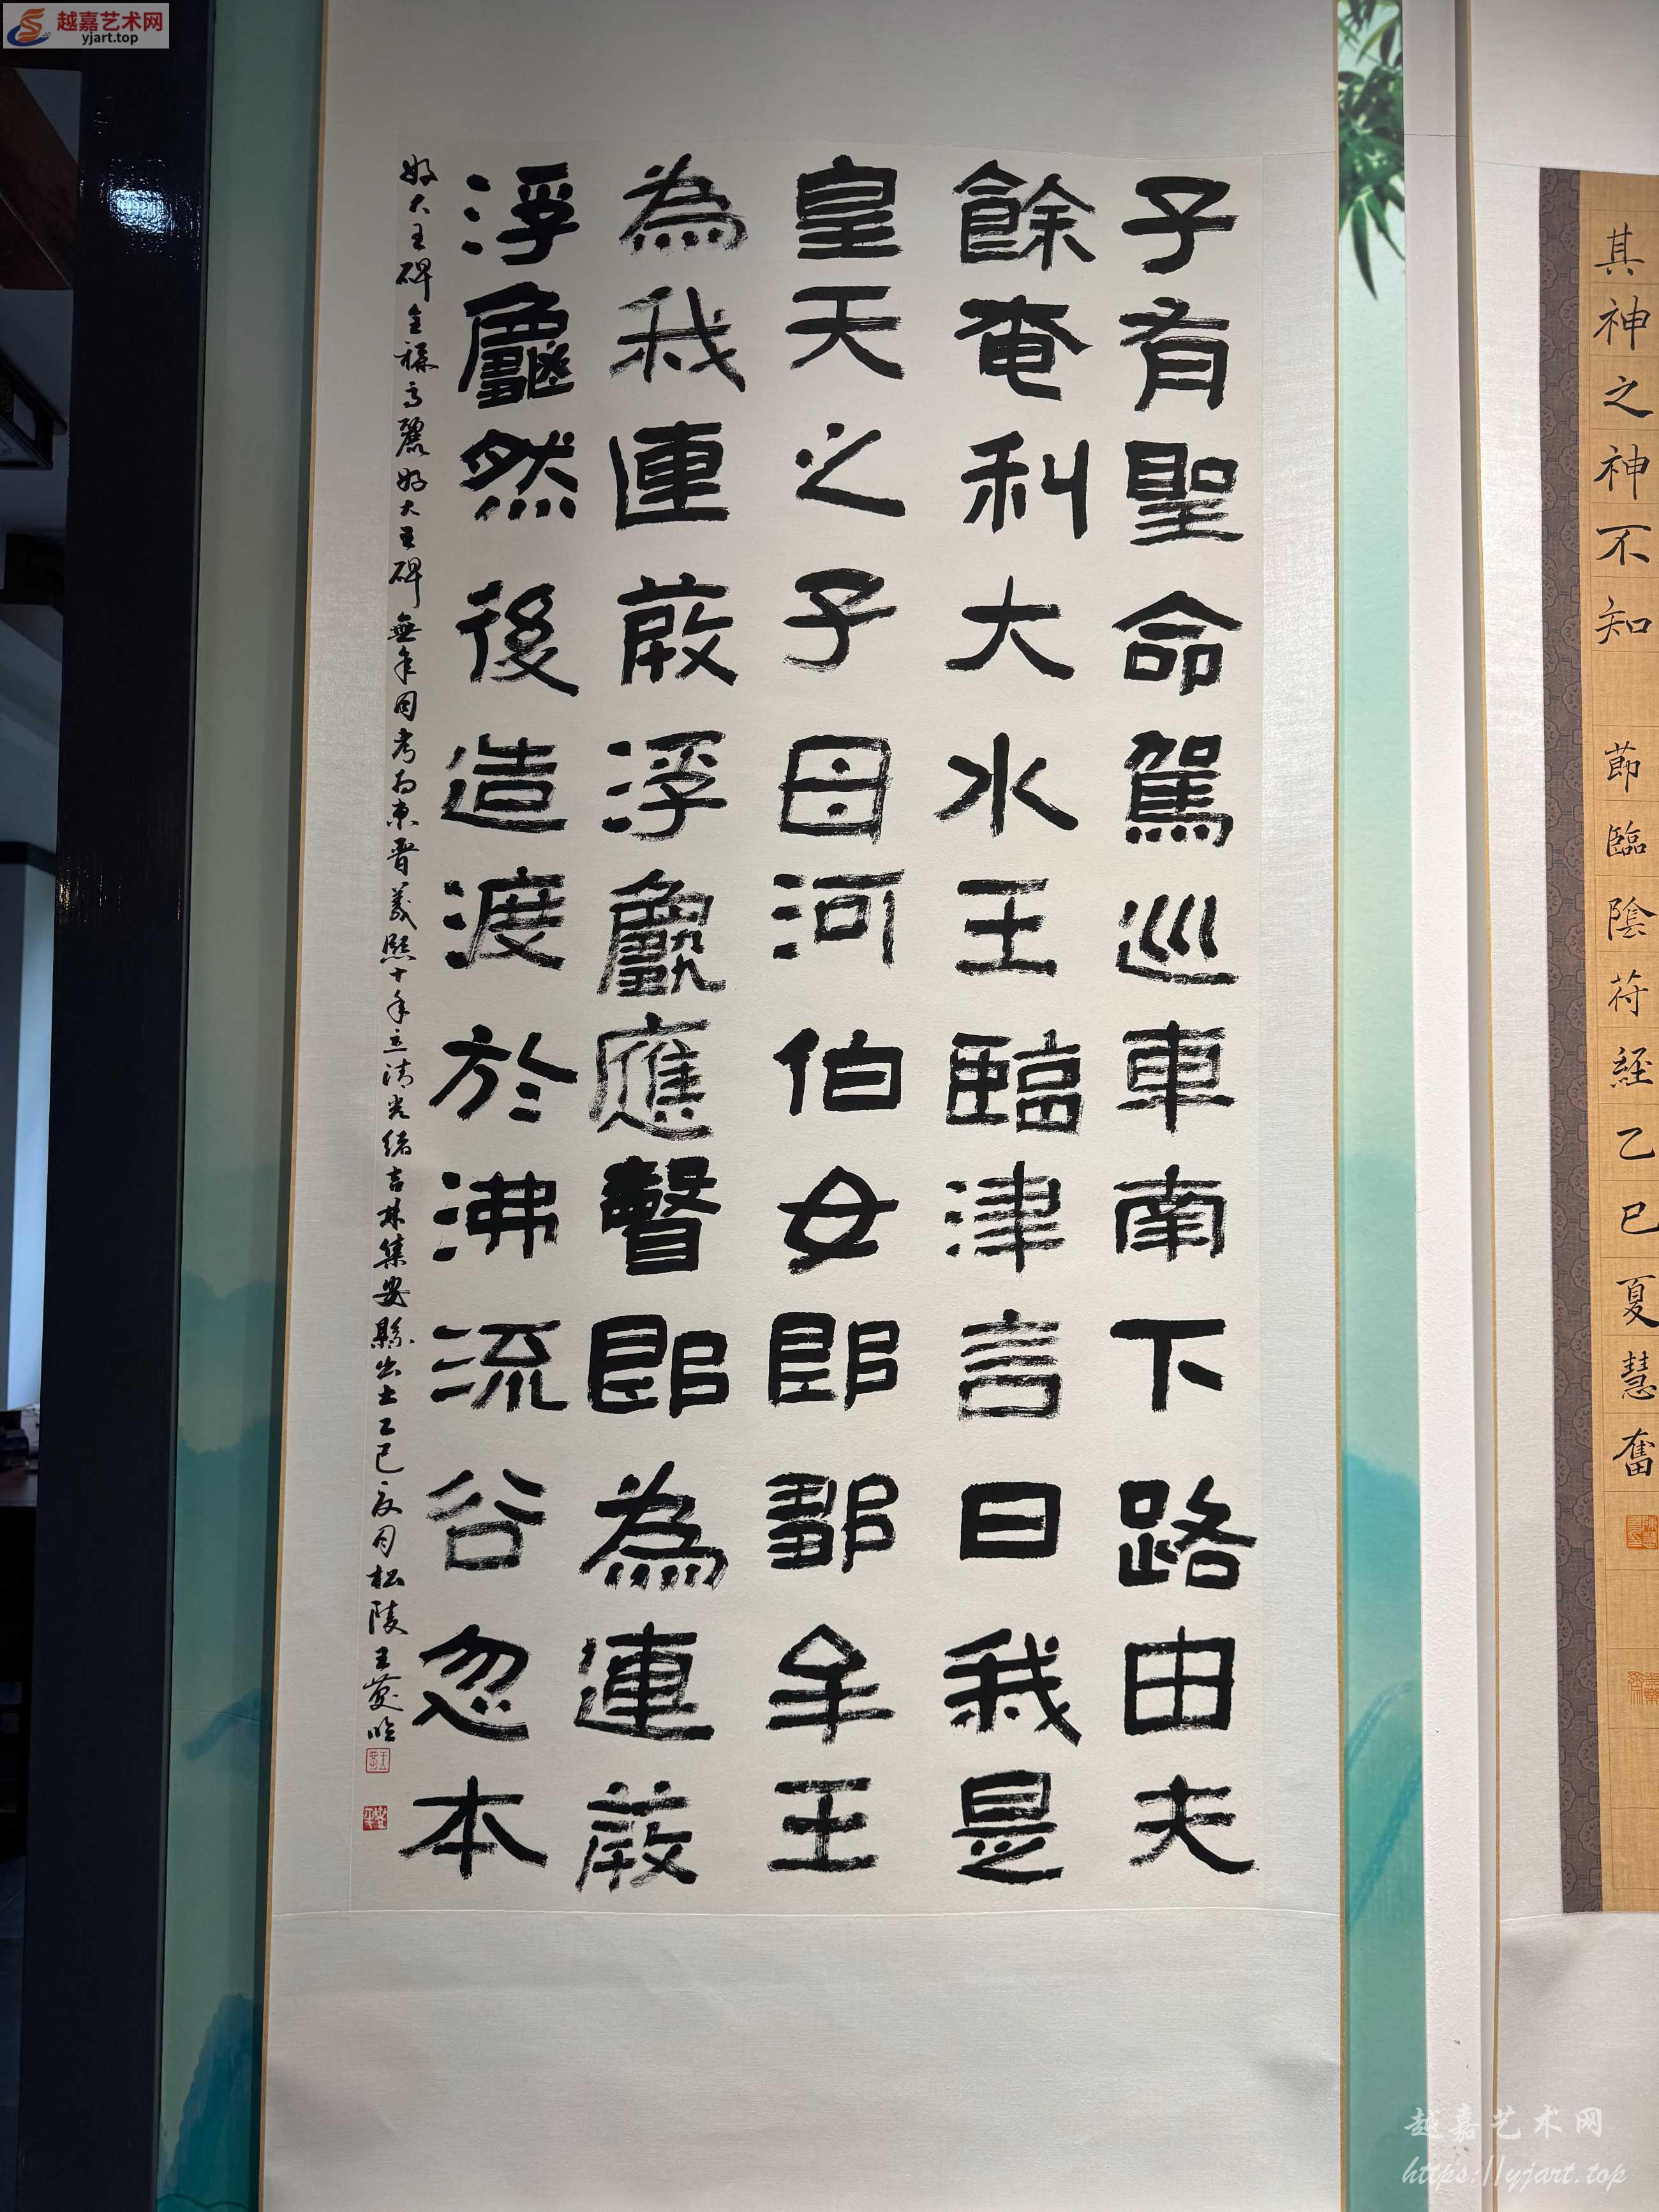 越嘉艺术网
yjart.top
其神之神不知 節臨陰符經乙巳夏慧奮
子有聖命駕巡車南下路由夫
餘奄利大水王臨津言曰我是
皇天之子母河伯女郎鄒牟王
為我連葭浮龜應聲即為連葭
浮龜然後造渡於沸流谷忽本
好大王碑全稱高麗好大王碑無年月考為東晉義熙十年立清光緒吉林集安縣出土乙巳夏月松陵王臨
越嘉艺术网
https://yjart.top